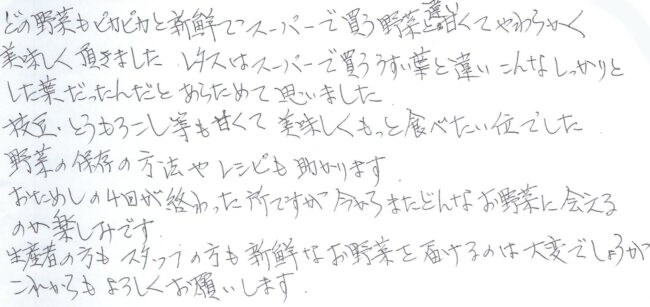 どの野菜もピカピカと新鮮でスーパーで買う野菜と違い甘くてやわらかく
美味しく頂きました レタスはスーパーで買ううすい葉と違いこんなしっかりと
した葉だったんだとあらためて思いました
枝豆・とうもろこし等も甘くて美味しくもっと食べたい位でした
野菜の保存の方法やレシピも助かります
おためしの4回が終わった所ですが今からまたどんなお野菜に会える
のか楽しみです
生産者の方もスタッフの方も新鮮なお野菜を届けるのは大変でしょうが
これからもよろしくお願いします